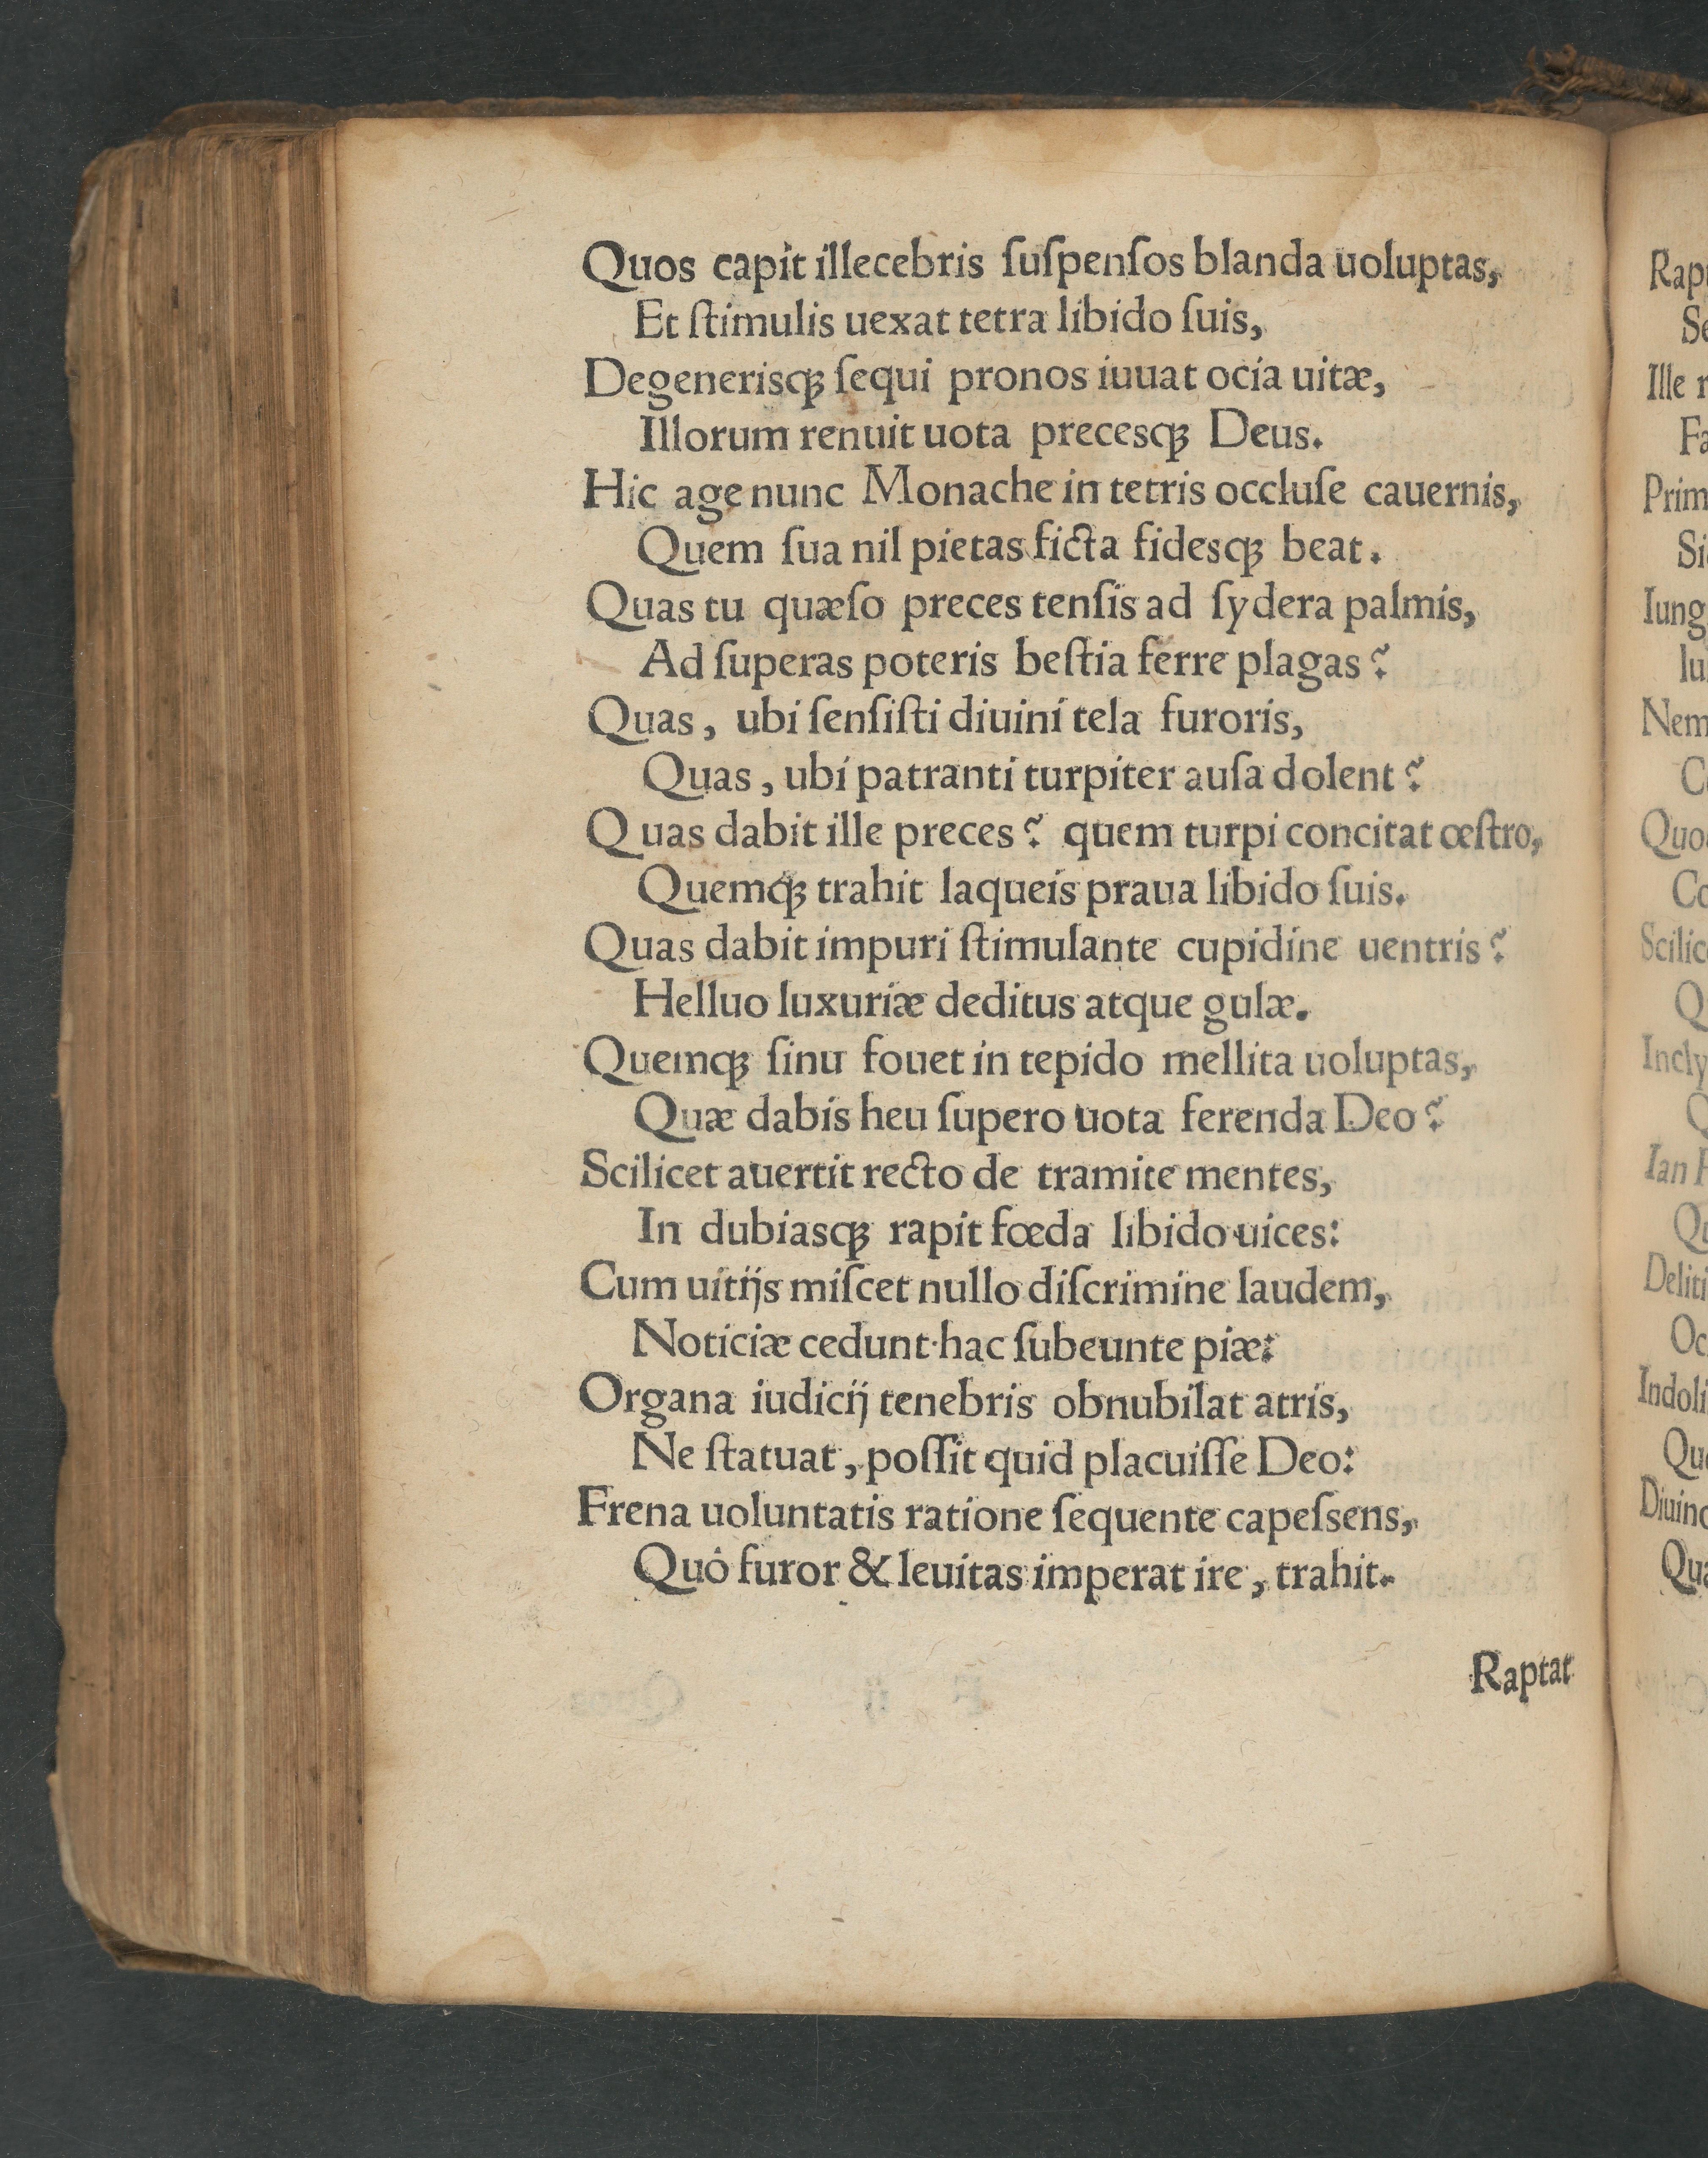 Quos capit illecebris ſuſpenſos blanda uoluptas,
Et ſtimulis uexat tetra libido ſuis,
Degenerisqꝫ ſequi pronos iuuat ocia uitæ,
Illorum renuit uota precesqꝫ Deus.
Hic age nunc Monache in tetris occluſe cauernis,
Quem ſua nil pietas ficta fidesqꝫ beat.
Quas tu quæſo preces tenſis ad ſydera palmis,
Ad ſuperas poteris beſtia ferre plagas?
Quas, ubi ſenſiſti diuini tela furoris,
Quas, ubi patranti turpiter auſa dolent?
Quas dabit ille preces? quem turpi concitat œſtro,
Quemq́ꝫ trahit laqueis praua libido ſuis.
Quas dabit impuri ſtimulante cupidine uentris?
Helluo luxuriæ deditus atque gulæ.
Quemqꝫ ſinu fouet in tepido mellita uoluptas,
Quæ dabis heu ſupero uota ferenda Deo?
Scilicet auertit recto de tramite mentes,
In dubiasqꝫ rapit fœda libido uices:
Cum uitijs miſcet nullo diſcrimine laudem,
Noticiæ cedunt hac ſubeunte piæ:
Organa iudicij tenebris obnubilat atris,
Ne ſtatuat, poſſit quid placuiſſe Deo:
Frena uoluntatis ratione ſequente capeſsens,
Quò furor & leuitas imperat ire, trahit.
Raptat
Ille